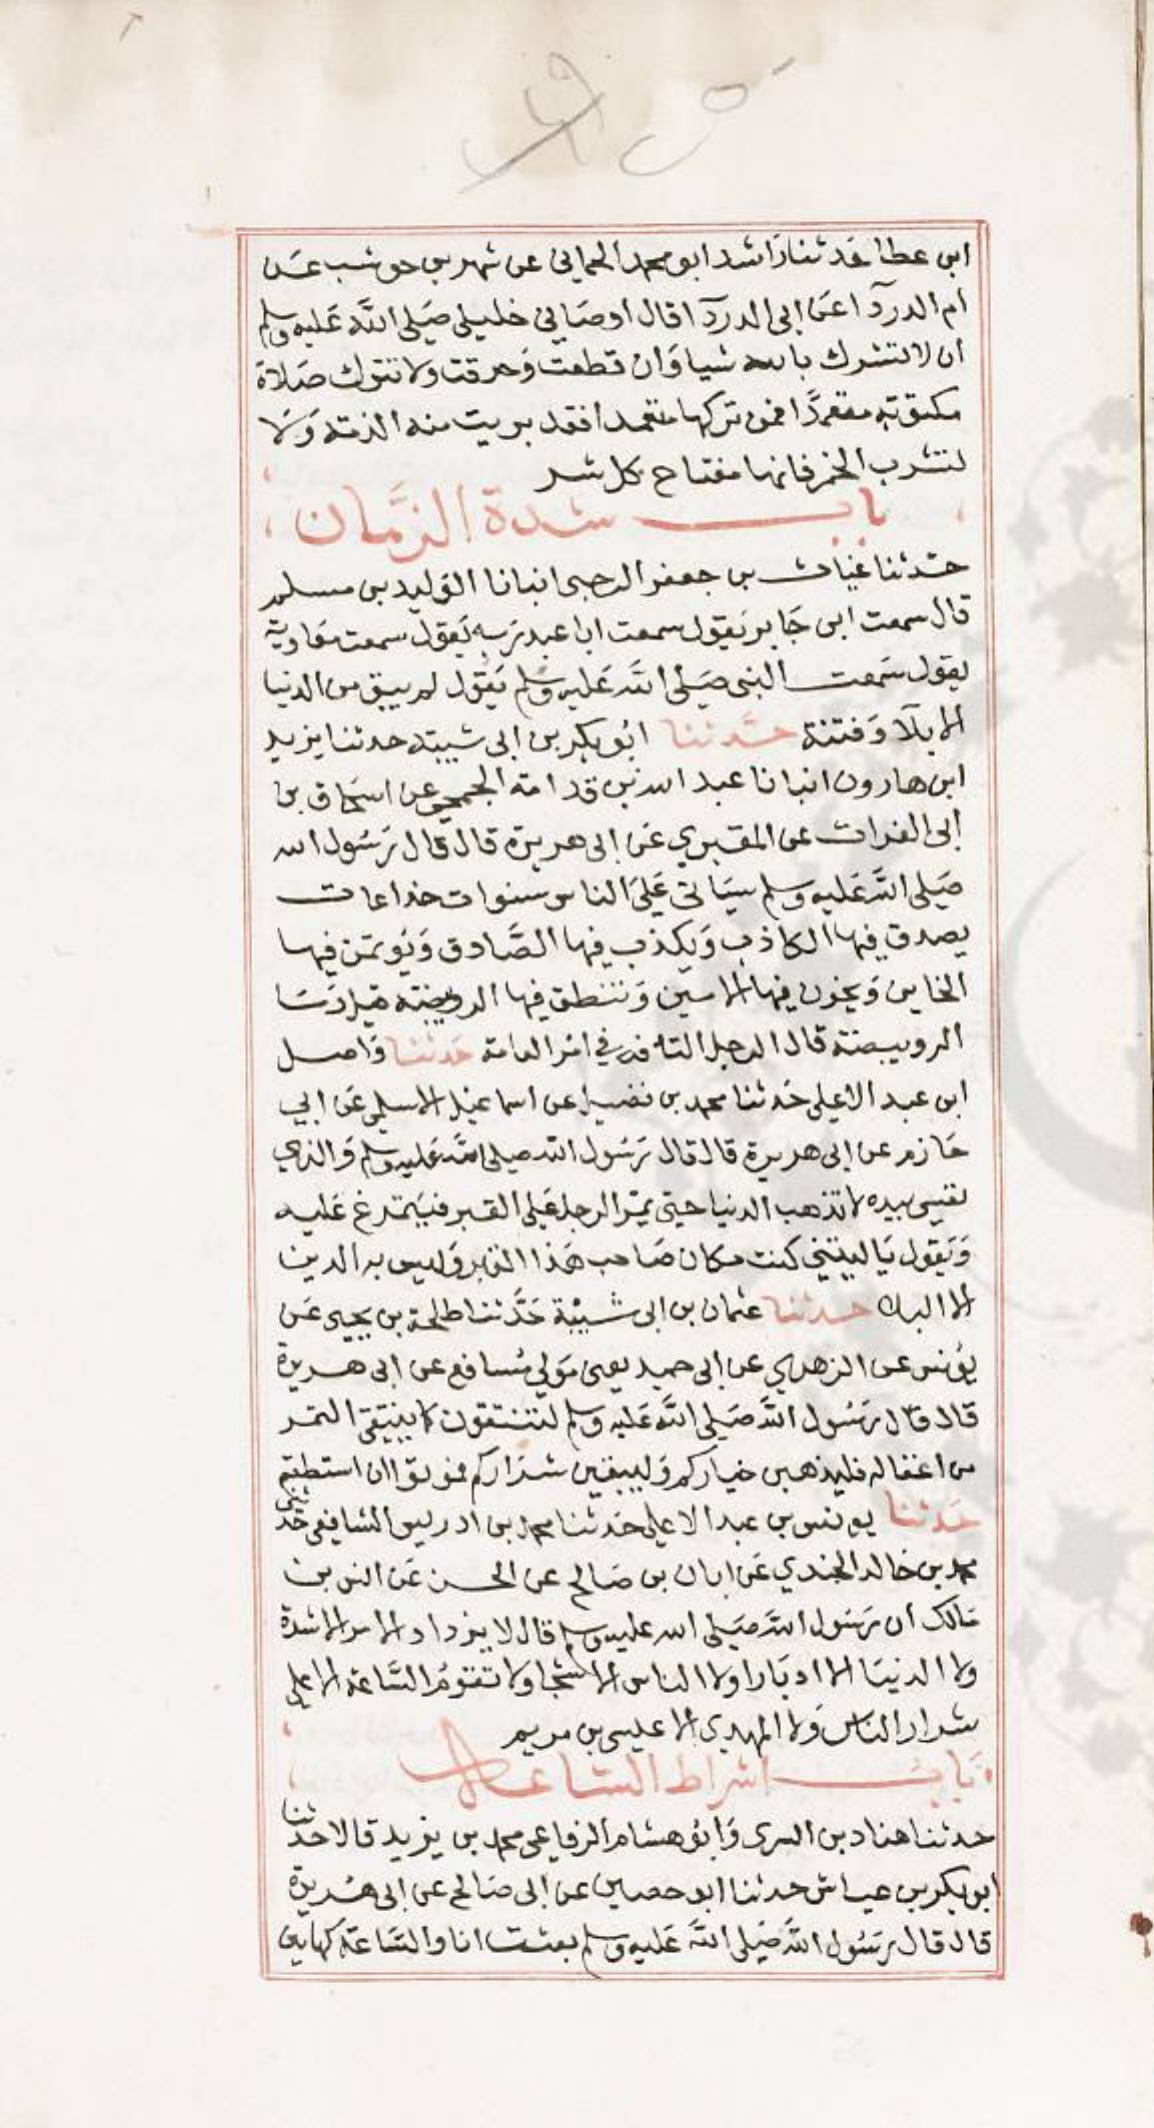 ابن عطا حدثنا راشد ابو محمد الحماني عن شهر بن حوشب عن
ام الدردآ عن ابى الدردآ قال اوصاني خليلي صلى الله عليه وسلم
ان لا تشرك بالله شيا وان قطعت وحرقت ولا تترك صلاة
مكتوبة متعمدًا فمن تركها متعمدا فقد بريت منه الذمة ولا
تشرب الخمر فانها مفتاح كل شر
باب شدة الزمان
حدثنا غياث بن جعفر الرحبى انبانا الوليد بن مسلم
قال سمعت ابن جابر يقول سمعت ابا عبد ربه يقول سمعت معاوية
يقول سمعت النبى صلى الله عليه وسلم يقول لم يبق من الدنيا
الا بلآ وفتنة حدثنا ابو بكر بن ابى شيبة حدثنا يزيد
ابن هارون انبانا عبد الله بن قدامة الجمحي عن اسحاق بن
ابى الفرات عن المقبري عن ابى هريرة قال قال رسول الله
صلى الله عليه وسلم سياتى على الناس سنوات خداعات
يصدق فيها الكاذب ويكذب فيها الصادق ويوتمن فيها
الخاين ويخون فيها الامين وتنطق فيها الرويبضة قيل وما
الرويبضة قال الرجل التافه في امر العامة حدثنا واصل
ابن عبد الاعلى حدثنا محمد بن فضيل عن اسماعيل الاسلمى عن ابي
حازم عن ابى هريرة قال قال رسول الله صلى الله عليه وسلم والذي
نفسى بيده لا تذهب الدنيا حتى يمر الرجل على القبر فيتمرغ عليه
ويقول يا ليتني كنت مكان صاحب هذا القبر وليس به الدين
الا البلا حدثنا عثمان بن ابى شيبة حدثنا طلحة بن يحيى عن
يونس عن الزهري عن ابى حميد يعنى مولى مسافع عن ابى هريرة
قال قال رسول الله صلى الله عليه وسلم لتنتقون كما ينتقى التمر
من اغفاله فليذهبن خياركم وليبقين شراركم فموتوا ان استطعتم
حدثنا يونس بن عبد الاعلى حدثنا محمد بن ادريس الشافعى حدثنى
محمد بن خالد الجندي عن ابان بن صالح عن الحسن عن انس بن
مالك ان رسول الله صلى الله عليه وسلم قال لا يزداد الامر الا شدة
ولا الدنيا الا ادبارا ولا الناس الا شحا ولا تقوم الساعة الا على
شرار الناس ولا المهدى الا عيسى بن مريم
باب اشراط الساعة
حدثنا هناد بن السرى وابو هشام الرفاعى محمد بن يزيد قالا حدثنا
ابو بكر بن عياش حدثنا ابو حصين عن ابى صالح عن ابى هريرة
قال قال رسول الله صلى الله عليه وسلم بعثت انا والساعة كهاتين